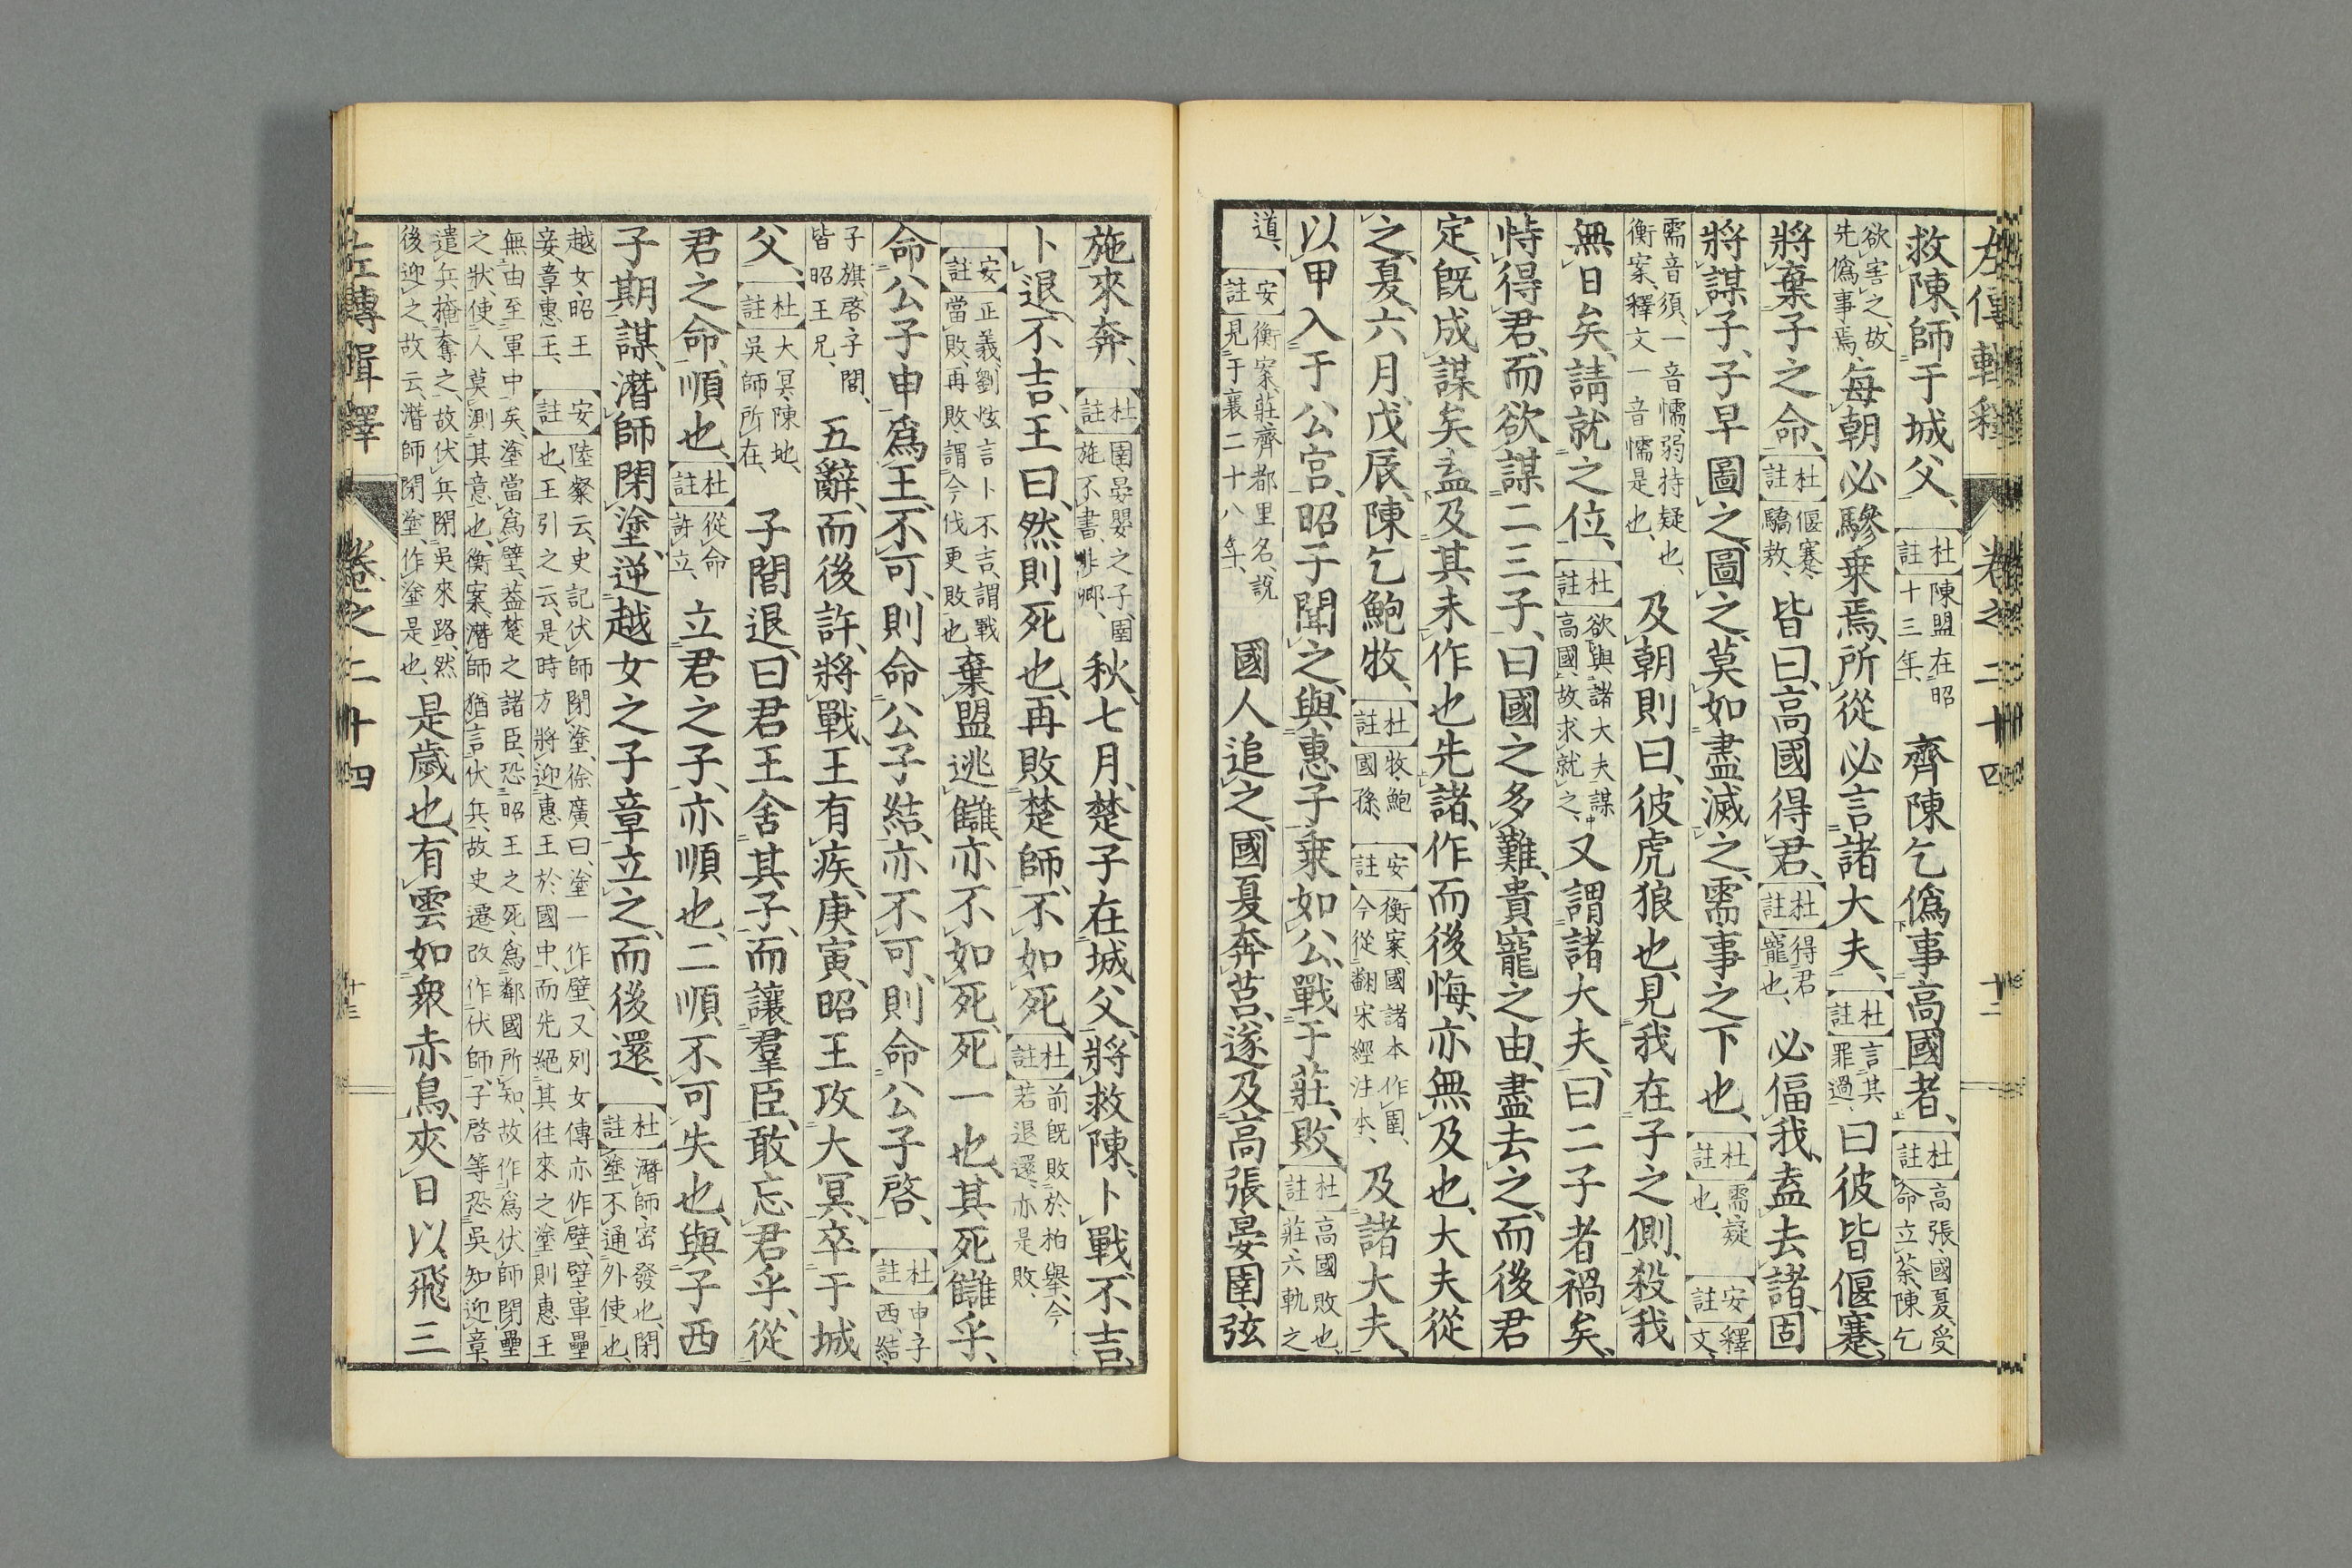 左傳輯釋 卷之二十四 十二
救陳、師于城父、【杜註】陳盟在昭十三年、齊陳乞僞事高國者、【杜註】高張・國夏、受命立荼、陳乞
欲害之、故先僞事焉、每朝必驂乗焉、所從必言諸大夫、【杜註】言其罪過、曰彼皆偃蹇、
將棄子之命、【杜註】偃蹇、驕敖、皆曰、高國得君、【杜註】得君寵也、必偪我、盍去諸、固
將謀子、子早圖之、圖之、莫如盡滅之、需事之下也、【杜註】需、疑也、【安註】釋文、
需音須、一音懦、弱持疑也、衡案、釋文一音懦是也、及朝則曰、彼虎狼也、見我在子之側、殺我
無日矣、請就之位、【杜註】欲與諸大夫謀高國、故求就之、又謂諸大夫、曰二子者禍矣、
恃得君、而欲謀二三子、曰國之多難、貴寵之由、盡去之、而後君
定、旣成謀矣、盍及其未作也、先諸、作而後悔、亦無及也、大夫從
之、夏、六月、戊辰、陳乞鮑牧、【杜註】牧、鮑國孫、【安註】衡案、國諸本作圉、今從翻宋經注本、及諸大夫、
以甲入于公宮、昭子聞之、與惠子乗如公、戰于莊、敗【杜註】高國敗也、莊、六軌之
道、【安註】衡案、莊、齊都里名、說見于襄二十八年、國人追之、國夏奔莒、遂及高張晏圉弦
施來奔、【杜註】圉、晏嬰之子、圉施不書、非卿、秋、七月、楚子在城父、將救陳、卜戰不吉、
卜退、不吉、王曰、然則死也、再敗楚師、不如死、【杜註】前旣敗於柏舉、今若退還、亦是敗、
【安註】正義、劉炫言、卜不吉、謂戰當敗、再敗、謂今伐更敗也棄盟逃讎、亦不如死、死一也、其死讎乎、
命公子申爲王、不可、則命公子結、亦不可、則命公子啓、【杜註】申、子西、結、
子旗、啓、子閭、皆昭王兄、五辭、而後許、將戰、王有疾、庚寅、昭王攻大冥、卒于城
父、【杜註】大冥、陳地、吳師所在、子閭退、曰君王舍其子、而讓羣臣、敢忘君乎、從
君之命、順也、【杜註】從命許立、立君之子、亦順也、二順不可失也、與子西
子期謀、潛師閉塗、逆越女之子章立之、而後還、【杜註】潛師、密發也、閉塗、不通外使也、
越女、昭王妾、章、惠王、【安註】陸粲云、史記、伏師閉塗、徐廣曰、塗一作壁、又列女傳亦作壁、壁、軍壘也、王引之云、是時方將迎惠王於國中、而先絕其往來之塗、則惠王
無由至軍中矣、塗當爲壁、葢楚之諸臣、恐昭王之死、爲鄰國所知、故作爲伏師閉壘之狀、使人莫測其意也、衡案、潛師、猶言伏兵、故史遷改作伏師、子啓等恐吳知迎章、
遣兵掩奪之、故伏兵閉吳來路、然後迎之、故云、潛師閉塗、作塗是也、是歲也、有雲如衆赤鳥、夾日以飛三
左傳輯釋 卷之二十四 十三